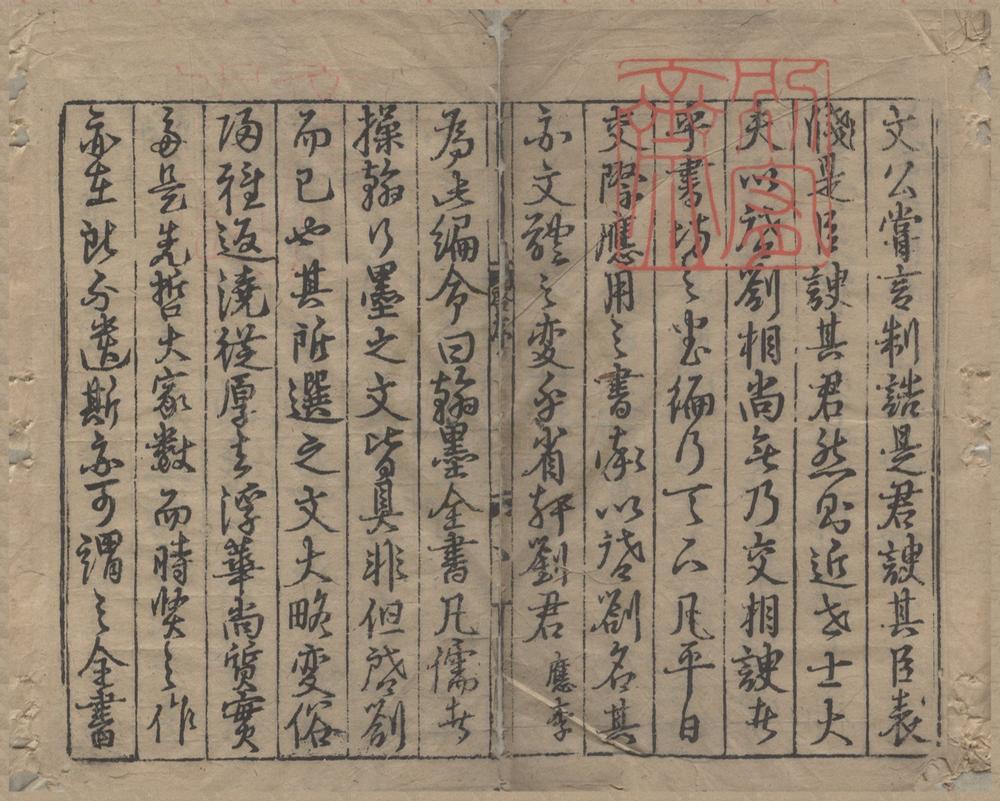 文公嘗言制誥是君諛其臣表
牋是臣諛其君然則近世士大
夫以啓劄相尚無乃交相諛者
乎書坊之書徧行天下凡平日
交際應用之書漸以啓劄名其
亦文體之變乎省軒劉君應李
為此編命曰翰墨全書凡儒者
操翰行墨之文皆具非但啓劄
而已也其所選之文大略變俗
歸雅返澆從厚去浮華尚質實
多是先哲大家數而時賢之作
亦在所不遺斯亦可謂之全書